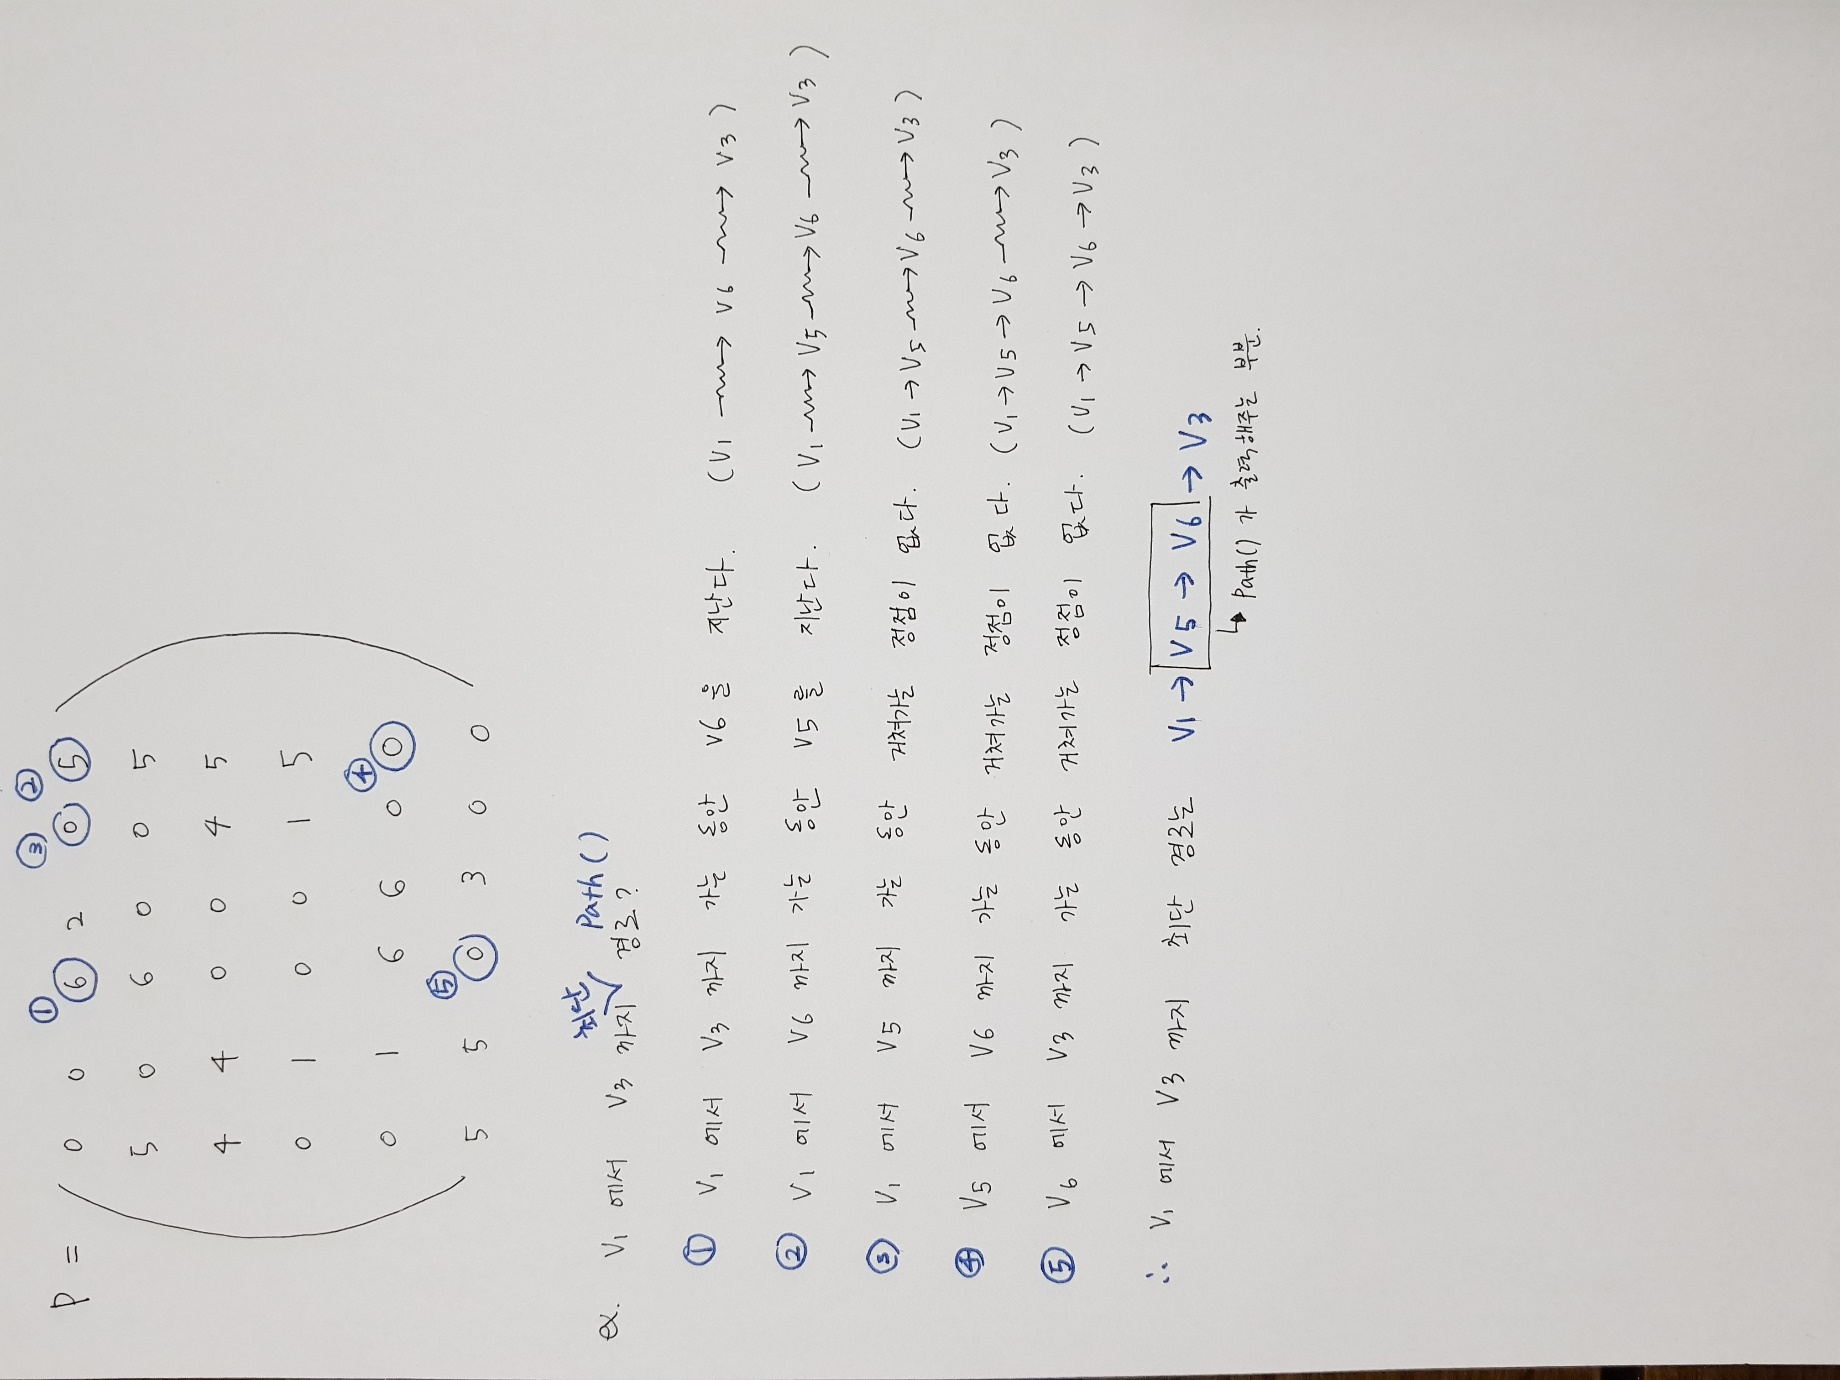 ① ③ ②
P = 0 0 6 2 0 5
5 0 6 0 0 5
4 4 0 0 4 5
0 1 0 0 1 5
④
0 1 6 6 0 0
⑤
5 5 0 3 0 0
최단 Path()
ex. V1 에서 V3 까지 경로?
① V1 에서 V3 까지 가는 동안 V6을 지난다. (V1 ⇝ V6 ⇝ V3)
② V1 에서 V6 까지 가는 동안 V5를 지난다. (V1 ⇝ V5 ⇝ V6 ⇝ V3)
③ V1 에서 V5 까지 가는 동안 거쳐가는 정점이 없다. (V1 → V5 ⇝ V6 ⇝ V3)
④ V5 에서 V6 까지 가는 동안 거쳐가는 정점이 없다. (V1 → V5 → V6 ⇝ V3)
⑤ V6 에서 V3 까지 가는 동안 거쳐가는 정점이 없다. (V1 → V5 → V6 → V3)
∴ V1 에서 V3 까지 최단 경로는 V1 → V5 → V6 → V3
↳ Path()가 출력해주는 부분.